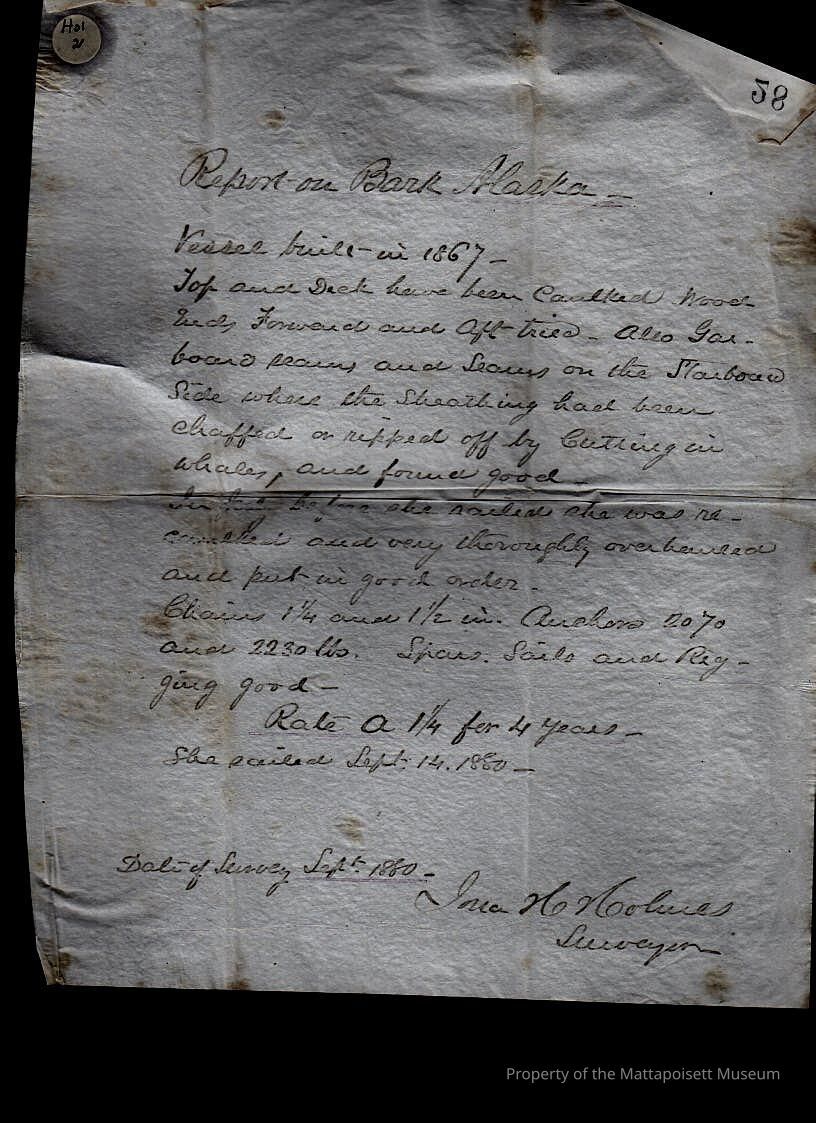 Hol
21
58
Report on Bark Alaska –
Vessel built in 1867 –
Top and Deck have been Caulked Wood
Ends Forward and Aft tried – Also Gar-
board seams and Seams on the Starboard
Side where the Sheathing had been
chaffed or ripped off by Cutting in
whales, and found good –
before she sailed she was re-
caulked and very thoroughly overhauled
and put in good order.
Chains 1¼ and 1½ in. Anchors 2070
and 2230 lbs. Spars. Sails and Rig-
ging good –
Rate A 1¼ for 4 years –
She sailed Sept. 14. 1880 –
Date of Survey Sept. 1880 –
H Holmes
Surveyor
Property of the Mattapoisett Museum